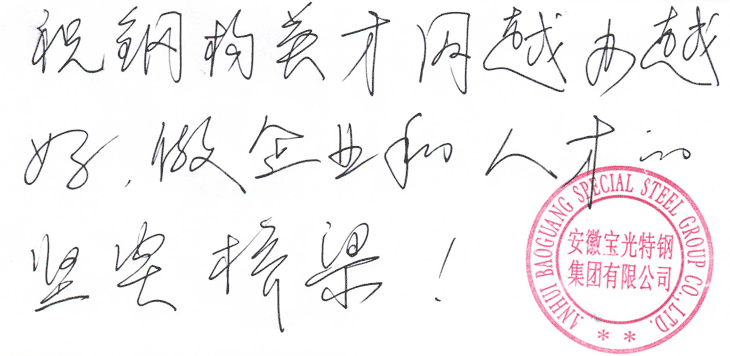 祝钢构英才网越办越
好,做企业和人才的
坚实桥梁!
ANHUI BAOGUANG SPECIAL STEEL GROUP CO.,LTD.
安徽宝光特钢
集团有限公司
**